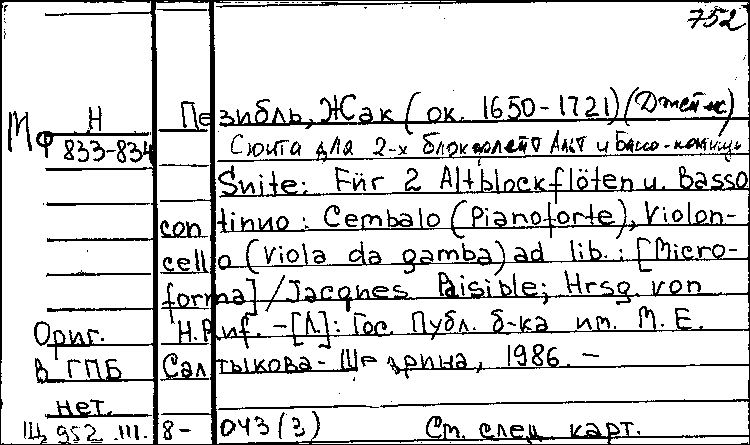 752
Пезибль, Жак (ок. 1650-1721) (Джеймс)
Мф Н 833-834
Сюита для 2-х блокфлейт Альт и Бассо-континуо
Suite: Für 2 Altblockflöten u. Basso
continuo: Cembalo (Pianoforte), Violon-
cello (Viola da gamba) ad lib.: [Micro-
forma] / Jacques Paisible; Hrsg. von
H. Ruf. - [Л.]: Гос. Публ. б-ка им. М. Е.
Салтыкова-Щедрина, 1986. -
Ориг.
в ГПБ
нет.
Щ 952 III. 8-043(3) См. след. карт.